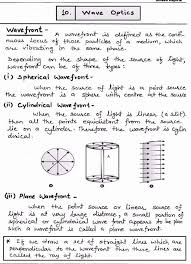 10. Wave Optics
Wavefront - A wavefront is defined as the conti-
nuous locus of those particles of a medium, which
are vibrating in the same phase.
Depending on the shape of the source of light,
wavefront can be of three types :
(i) Spherical Wavefront -
When the source of light is a point source
the wavefront is a sphere with centre at the source
(ii) Cylindrical Wavefront -
When the source of light is linear (a slit)
then all the points equidistant from the source
lie on a cylinder. Therefore the wavefront is cylin
drical.
(iii) Plane Wavefront -
When the point source or linear source of
light is at very large distance a small portion
of spherical or cylindrical wave front appears to be plane
such a wavefront is called a plane wavefront.
* If we draw a set of straight lines which are
perpendicular to the wavefront then these lines are
called the ray of light.